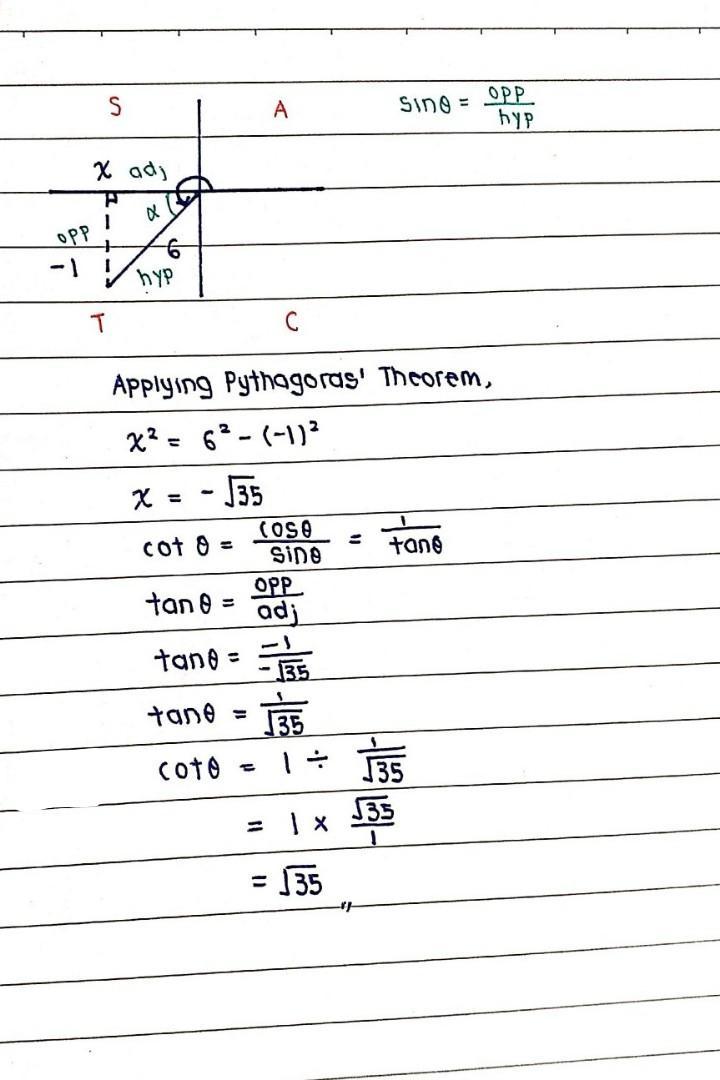 S A sinθ = opp/hyp
x adj
α
opp
6
-1
hyp
T C
Applying Pythagoras' Theorem,
x² = 6² - (-1)²
x = - √35
cot θ = cosθ/sinθ = 1/tanθ
tanθ = opp/adj
tanθ = -1/-√35
tanθ = 1/√35
cotθ = 1 ÷ 1/√35
= 1 × √35/1
= √35 〃